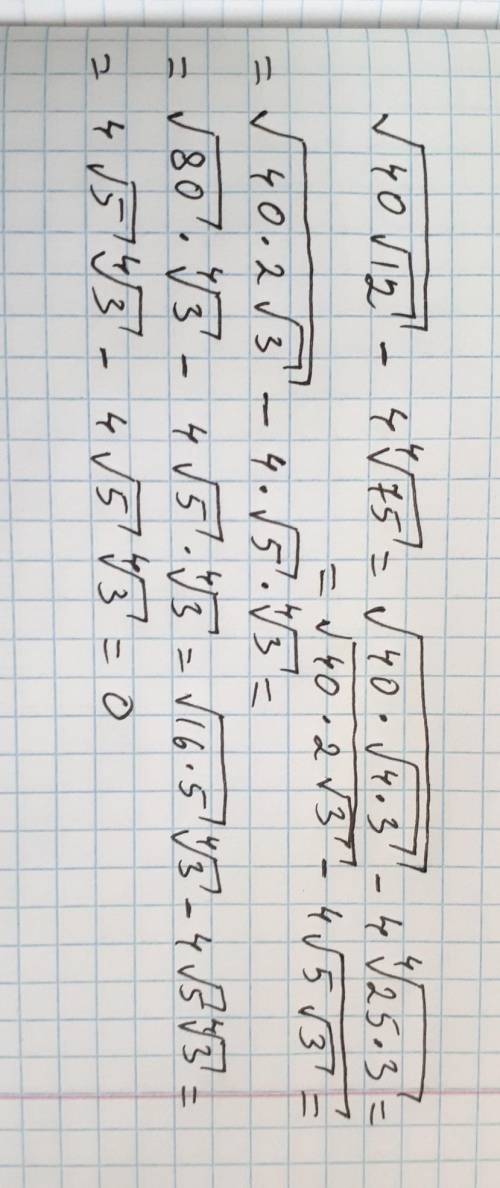 √(40√12) - 4⁴√75 = √(40·√(4·3)) - 4⁴√(25·3) =
= √(40·2√3) - 4√(5√3) =
= √(40·2√3) - 4·√5·⁴√3 =
= √80·⁴√3 - 4√5·⁴√3 = √(16·5)⁴√3 - 4√5⁴√3 =
= 4√5⁴√3 - 4√5⁴√3 = 0